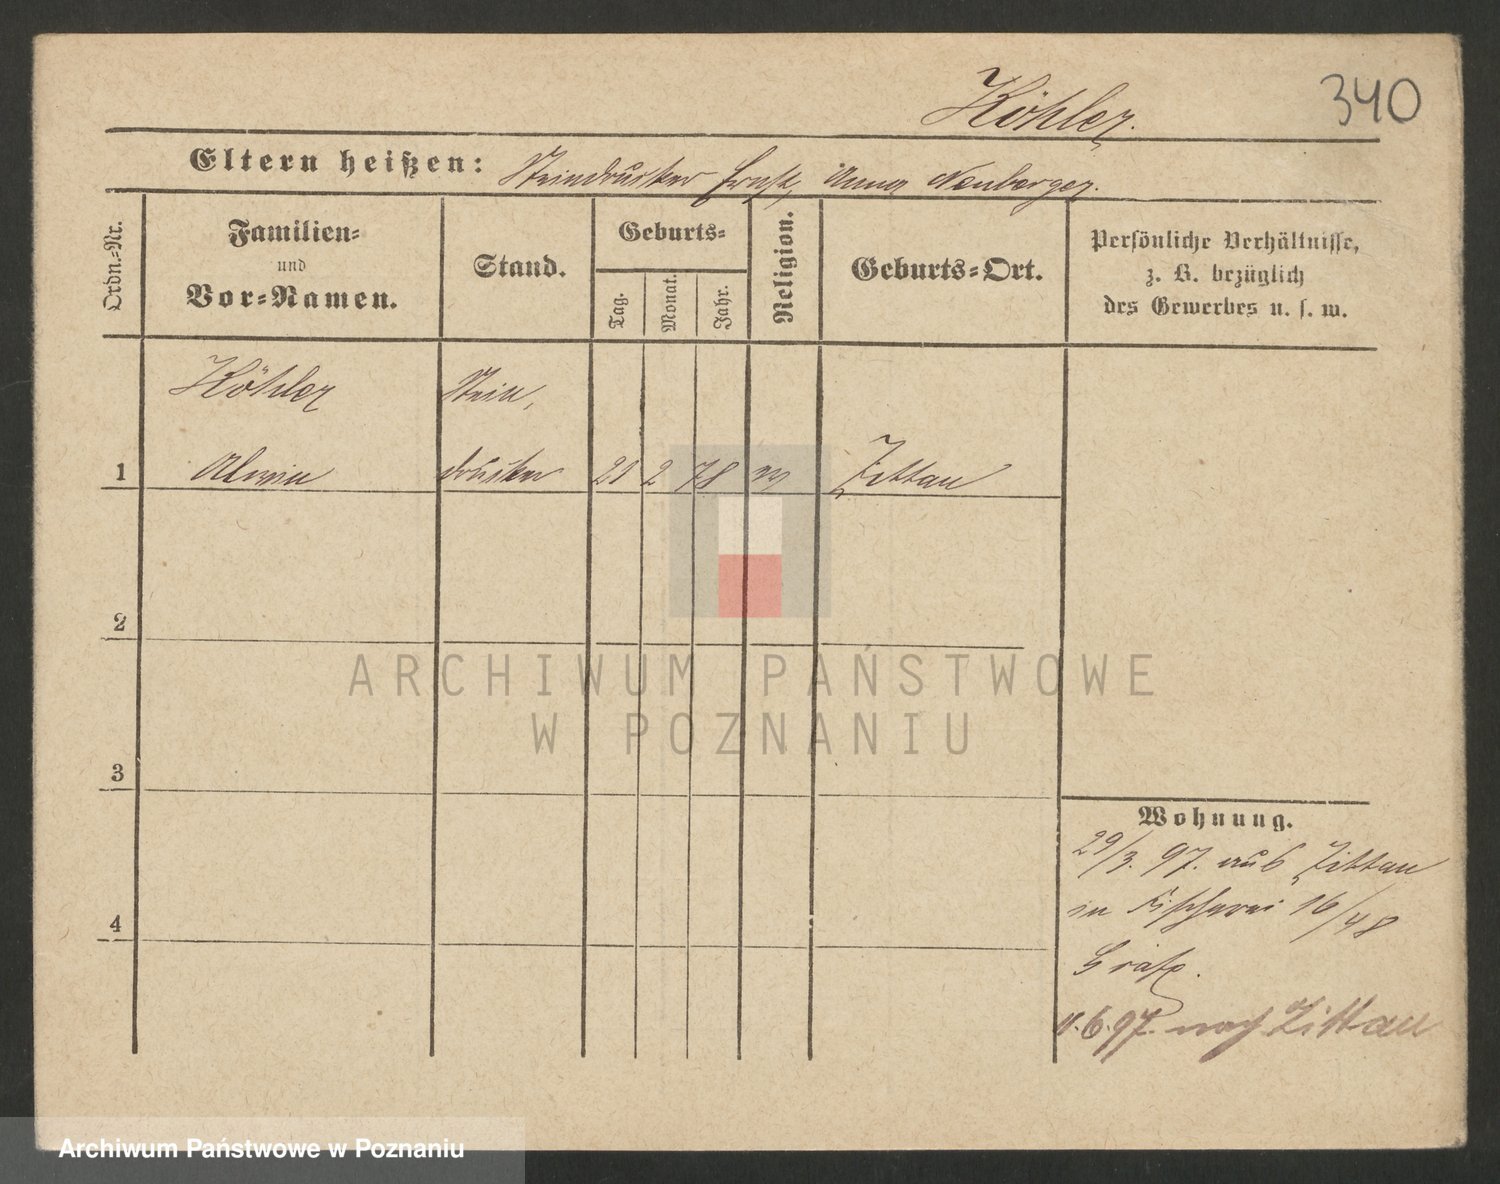 Köhler.
340
Eltern heißen: Steindrucker Ernst, Anna Neuberger.
Ordn.-Nr.
Familien-
und
Vor-Namen.
Stand.
Geburts-
Tag.
Monat.
Jahr.
Religion.
Geburts-Ort.
Persönliche Verhältnisse,
z. B. bezüglich
des Gewerbes u. s. w.
Köhler Stein,
1 Alwin drucker 21 2 78 Zittau
2
3
4
Wohnung.
29/3. 97. aus Zittau
in Fischerei 16/48
6.97. nach Zittau
ARCHIWUM PAŃSTWOWE
W POZNANIU
Archiwum Państwowe w Poznaniu